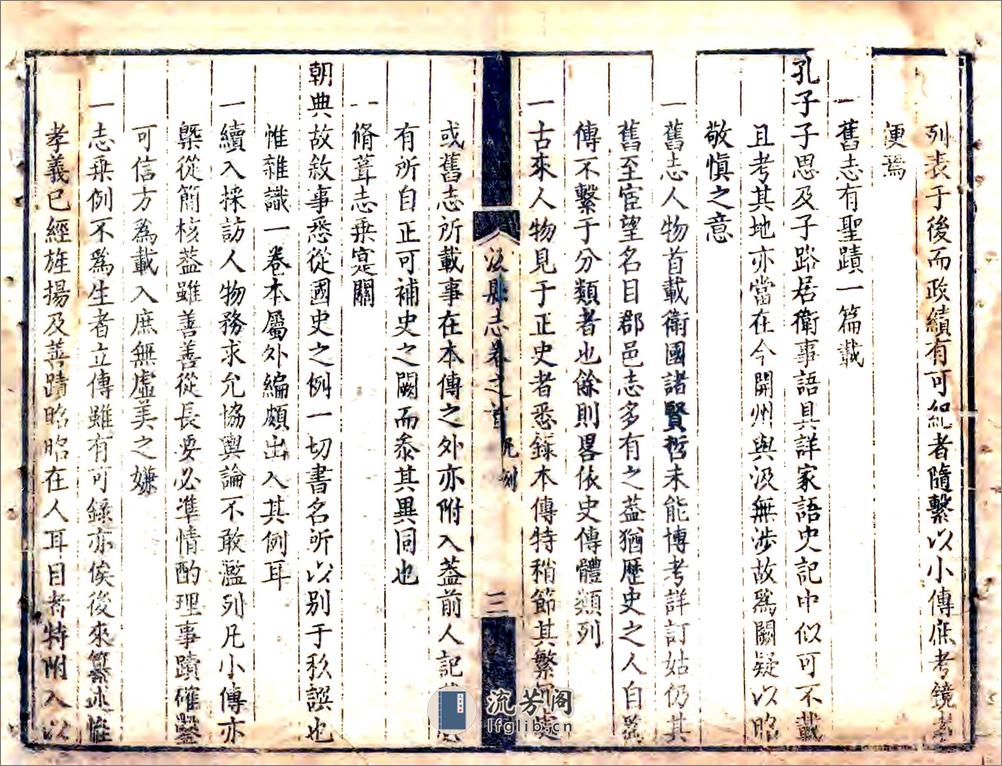 列表于後而政績有可紀者隨繫以小傳庶考鏡者
便焉
一舊志有聖蹟一篇載
孔子子思及子路居衛事語具詳家語史記中似可不載
且考其地亦當在今開州與汲無涉故爲闕疑以昭
敬慎之意
一舊志人物首載衛國諸賢哲未能博考詳訂姑仍其
舊至宦望名目郡邑志多有之葢猶歷史之人自爲
傳不繫于分類者也餘則畧依史傳體類列
一古來人物見于正史者悉錄本傳特稍節其繁
汲縣志卷之首 凡例
三
或舊志所載事在本傳之外亦附入葢前人記
有所自正可補史之闕而叅其異同也
一脩葺志乘寔關
朝典故敘事悉從國史之例一切書名所以别于私譔也
惟雜識一卷本屬外編頗出入其例耳
一續入採訪人物務求允協輿論不敢濫列凡小傳亦
槩從簡核葢雖善善從長要必準情酌理事蹟確鑿
可信方爲載入庶無虛美之嫌
一志乘例不爲生者立傳雖有可錄亦俟後來纂述惟
孝義已經旌揚及善蹟昭昭在人耳目者特附入以
流芳阁
lfglib.cn